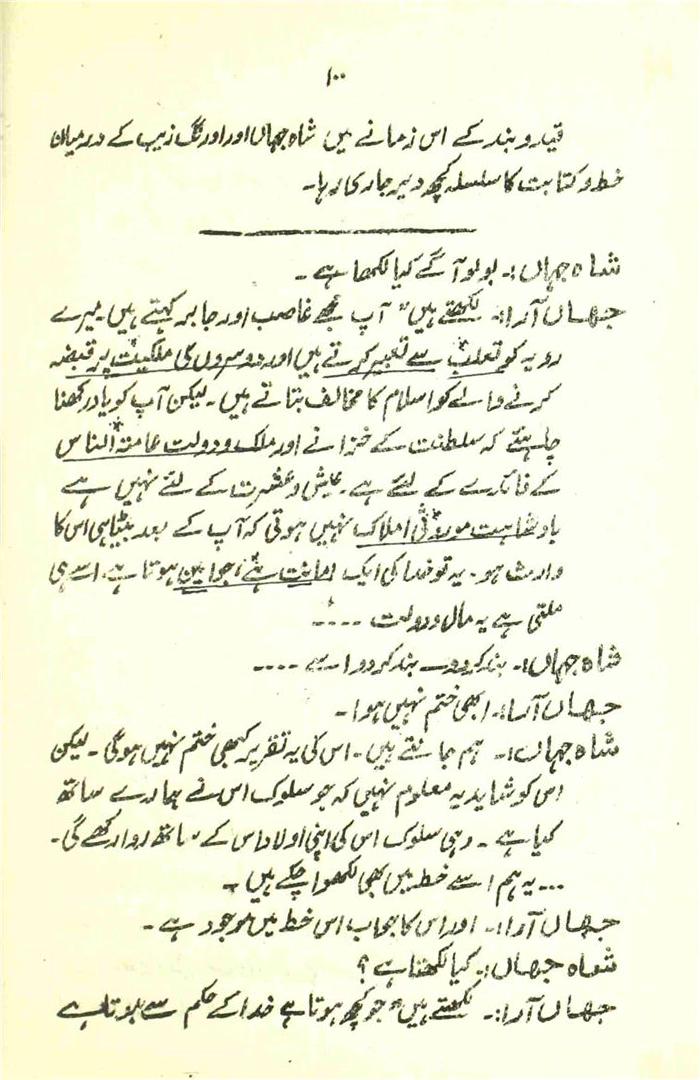 ۱۰۰
قید و بند کے اس زمانے میں شاہ جہاں اور اورنگ زیب کے درمیان
خط و کتابت کا سلسلہ کچھ دیر جاری رہا۔
شاہ جہاں:۔ بولو آگے کیا لکھا ہے۔
جہاں آرا:۔ لکھتے ہیں "آپ مجھے غاصب اور جابر کہتے ہیں۔ میرے
رویہ کو تغلب سے تعبیر کرتے ہیں اور دوسروں کی ملکیت پر قبضہ
کرنے والے کو اسلام کا مخالف بتاتے ہیں۔ لیکن آپ کو یاد رکھنا
چاہیئے کہ سلطنت کے خزانے اور ملک و دولت عامۃ الناس
کے فائدے کے لئے ہے۔ عیش و عشرت کے لئے نہیں ہے
بادشاہت موروثی املاک نہیں ہوتی کہ آپ کے بعد بیٹا ہی اس کا
وارث ہو۔ یہ تو خدا کی ایک امانت ہے، جو امین ہوتا ہے، اسے ہی
ملتی ہے یہ مال و دولت ۔۔۔۔
شاہ جہاں:۔ بند کردو۔ بند کردو اسے ۔۔۔۔
جہاں آرا:۔ ابھی ختم نہیں ہوا۔
شاہ جہاں:۔ ہم جانتے ہیں۔ اس کی یہ تقریر کبھی ختم نہیں ہوگی۔ لیکن
اس کو شاید یہ معلوم نہیں کہ جو سلوک اس نے ہمارے ساتھ
کیا ہے۔ وہی سلوک اس کی اپنی اولاد اس کے ساتھ روا رکھے گی۔
۔۔۔ یہ ہم اسے خط میں بھی لکھوا چکے ہیں۔
جہاں آرا:۔ اور اس کا جواب اس خط میں موجود ہے۔
شاہ جہاں:۔ کیا لکھتا ہے؟
جہاں آرا:۔ لکھتے ہیں "جو کچھ ہوتا ہے خدا کے حکم سے ہوتا ہے